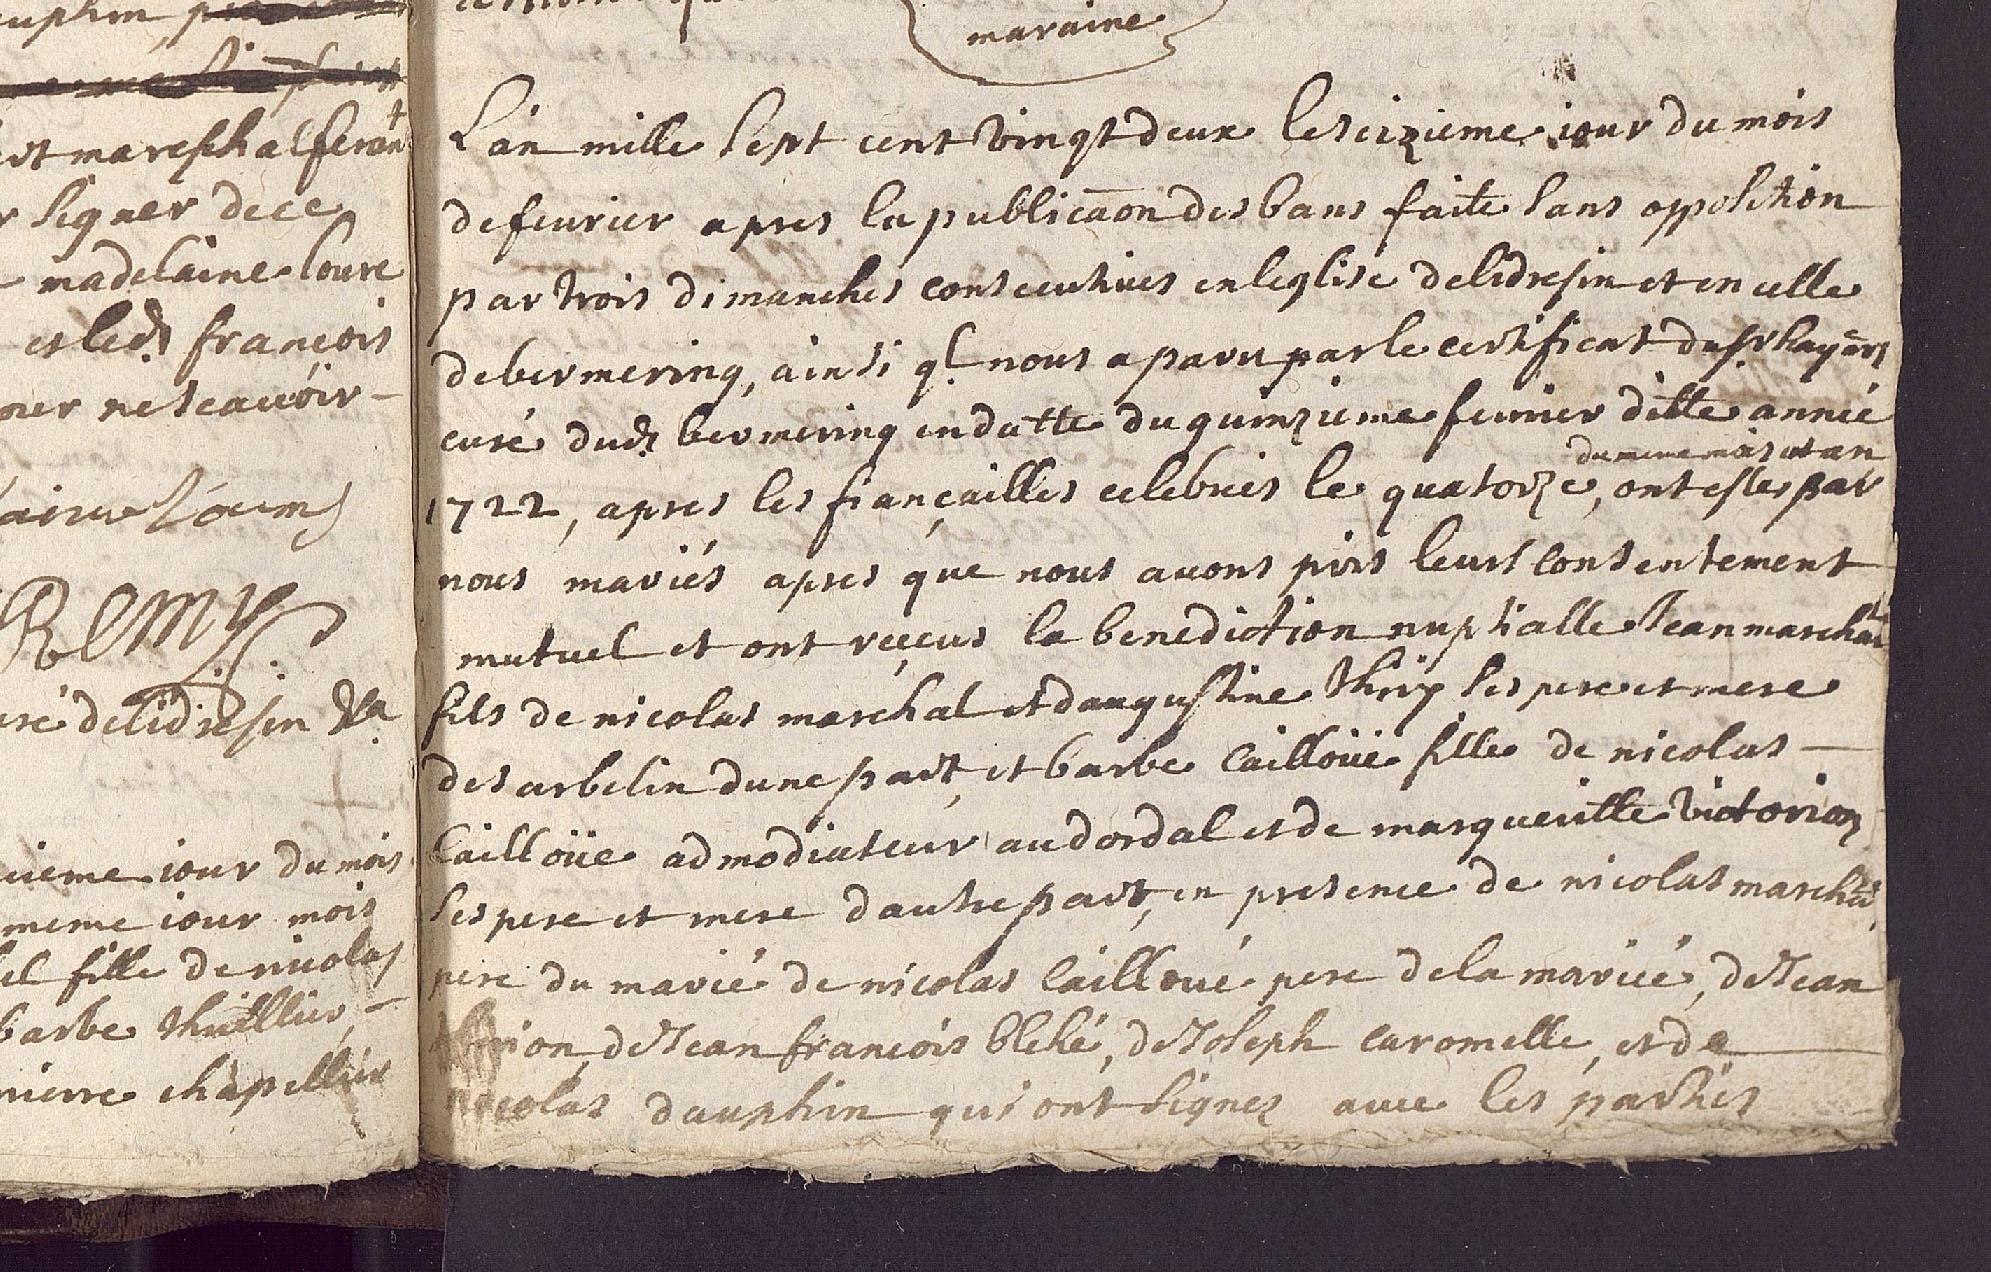 maraine
auphin
mareschal feran
signer de ce
madelaine loure
et led françois
pour ne scauoir
Remy
curé de lidresin
ieme iour du mois
meme iour mois
fille de nicolas
barbe thiellier,
pierre chapellier
L'an mille sept cent vingt deux le seizieme iour du mois
de feurier apres la publicaon des bans faite sans opposition
par trois dimanches consecutives en leglise de lidresin et en celle
de bermering, ainsi ql nous a paru par le certificat du sr
curé dud bermering en datte du quinzieme feurier ditte année
du meme mois et an
1722, apres les françailles celebrées le quatorze, ont estes par
nous mariés apres que nous auons piris leurs consentement
mutuel et ont reçeus la benediction nuptialle Jean marchal
fils de nicolas marchal et daugustine thiry ses pere et mere
des arbelin dune part, et barbe Cailloüe fille de nicolas
Cailloüe admodiateur au dordal et de margueritte victorion
ses pere et mere dautre part, en presence de nicolas marchal
pere du marié de nicolas Cailloué pere de la mariée, de Jean
de Jean françois blehé, de Joseph caromelle, et de
nicolas dauphin qui ont signez auec les parties